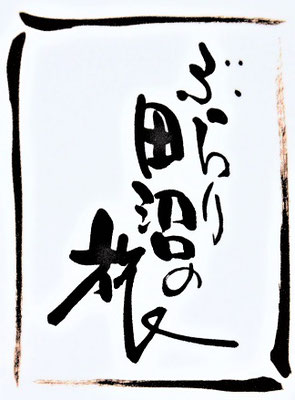 ぶらり
田沼の
旅